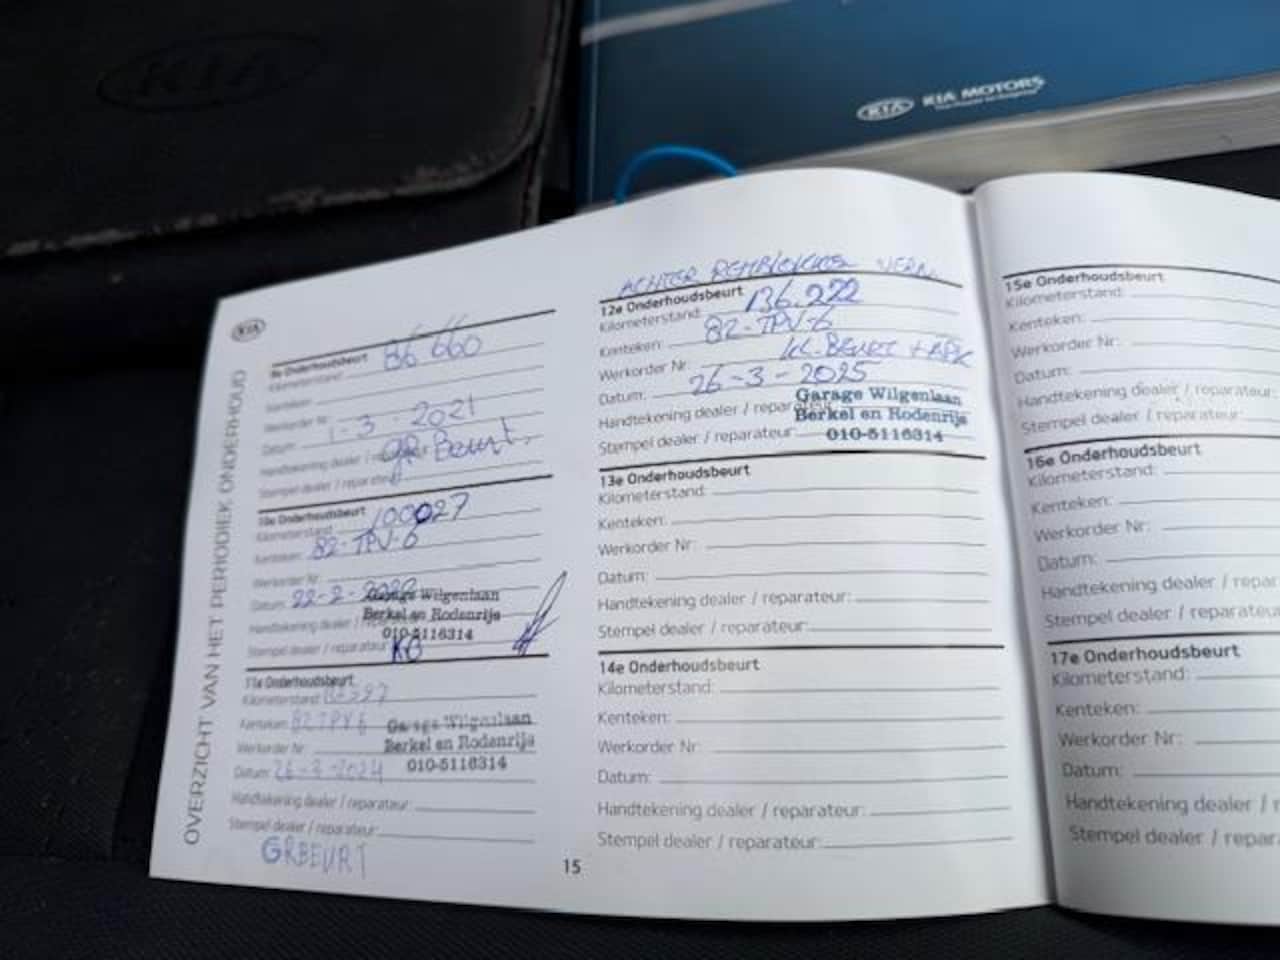 KIA
KIA KIA MOTORS
KIA
OVERZICHT VAN HET PERIODIEK ONDERHOUD
9e Onderhoudsbeurt
Kilometerstand: 86 660
Kenteken:
Werkorder Nr:
Datum: 1-3-2021
Handtekening dealer / reparateur: GR. Beurt.
Stempel dealer / reparateur:
10e Onderhoudsbeurt
Kilometerstand: 100027
Kenteken: 82-TPV-6
Werkorder Nr:
Datum: 22-2-2022 Garage Wilgenlaan
Handtekening dealer / Berkel en Rodenrijs
010-5116314
Stempel dealer / reparateur: KB
11e Onderhoudsbeurt
Kilometerstand:
Kenteken: 82TPV6 Garage Wilgenlaan
Werkorder Nr: Berkel en Rodenrijs
Datum: 26-3-2024 010-5116314
Handtekening dealer / reparateur:
Stempel dealer / reparateur:
GRBEURT
15
ACHTER REMBLOKKEN VERN.
12e Onderhoudsbeurt
Kilometerstand: 136.222
Kenteken: 82-TPV-6
Werkorder Nr: KL. BEURT + APK
Datum: 26-3-2025
Handtekening dealer / reparateur: Garage Wilgenlaan
Berkel en Rodenrijs
Stempel dealer / reparateur: 010-5116314
13e Onderhoudsbeurt
Kilometerstand:
Kenteken:
Werkorder Nr:
Datum:
Handtekening dealer / reparateur:
Stempel dealer / reparateur:
14e Onderhoudsbeurt
Kilometerstand:
Kenteken:
Werkorder Nr:
Datum:
Handtekening dealer / reparateur:
Stempel dealer / reparateur:
15e Onderhoudsbeurt
Kilometerstand:
Kenteken:
Werkorder Nr:
Datum:
Handtekening dealer / reparateur:
Stempel dealer / reparateur:
16e Onderhoudsbeurt
Kilometerstand:
Kenteken:
Werkorder Nr:
Datum:
Handtekening dealer / repar
Stempel dealer / repara
17e Onderhoudsbeurt
Kilometerstand:
Kenteken:
Werkorder Nr:
Datum:
Handtekening dealer / r
Stempel dealer / repar